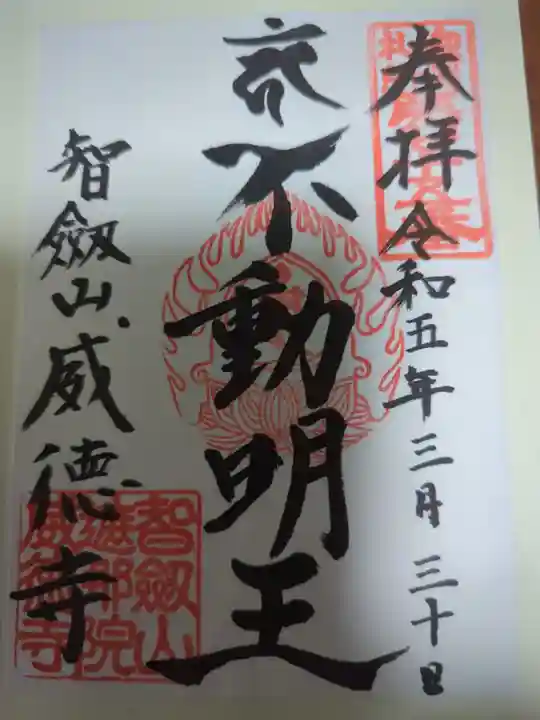 奉拝 令和五年三月三十日
不動明王
智劔山威徳寺
智劔山
遮那院
威徳寺